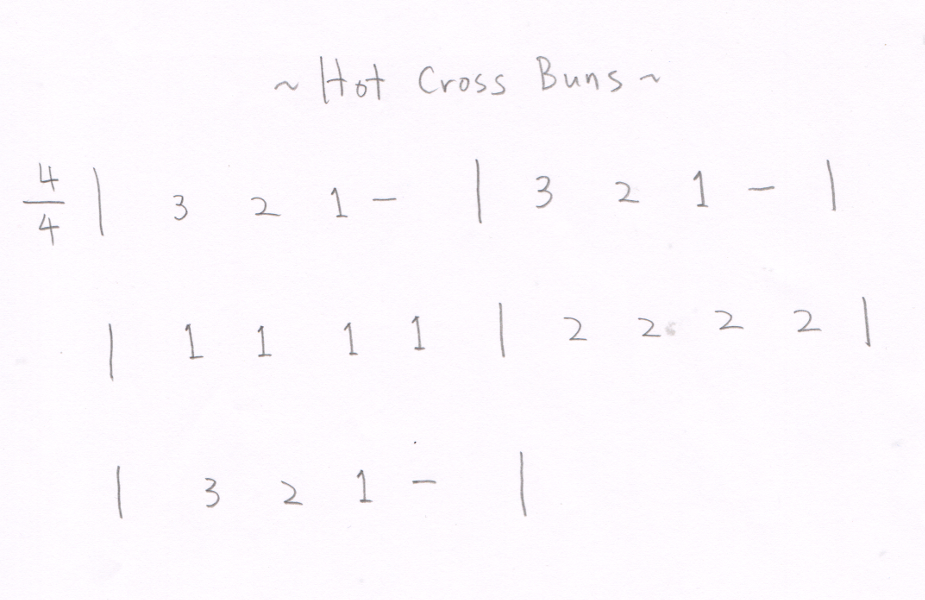 ~ Hot Cross Buns ~
4/4 | 3 2 1 - | 3 2 1 - |
| 1 1 1 1 | 2 2 2 2 |
| 3 2 1 - |